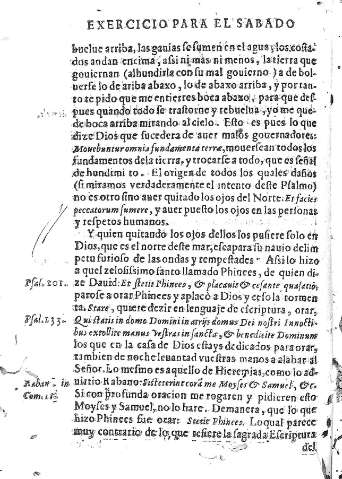 EXERCICIO PARA EL SABADO
buelue arriba, las gauias se sumen en el agua, los costa-
dos andan encima, assi ni más ni menos, la tierra que
gouiernan (al hundirla con su mal gouierno) a de bol-
uerse lo de ariba abaxo, lo de abaxo arriba, y por tan-
to te pido que me entierres boca abaxo, para que des-
pues quando todo se trastorne y rebuelua, yo me que-
de boca arriba mirando al cielo. Esto es pues lo que
dize Dios que sucedera de auer malos gouernadores:
Mouebuntur omnia fundamenta terræ, mouersean todos los
fundamentos de la tierra, y trocarse a todo, que es señal
de hundimi to. El origen de todos los quales daños
(si miramos verdaderamente el intento deste Psalmo)
no es otro sino auer quitado los ojos del Norte. Et facies
peccatorum sumere, y auer puesto los ojos en las personas
y respetos humanos.
Y quien quitando los ojos dellos los pusiere solo en
Dios, que es el norte deste mar, escapara su nauio del im
petu furioso de las ondas y tempestades. Assi lo hizo
a quel zelosissimo santo llamado Phinees, de quien di-
Psal. 201. ze Dauid: Et stetit Phinees, & placauit & cesante, quasatio
parose a orar Phinees y aplacó a Dios y ceso la tormen
ta. Stare, quiere dezir en lenguaje de escriptura, orar.
Psal. 133. Qui statis in domo Domini in atrijs domus Dei nostri In noctibus
extollite manus vestras in sancta, & benedicite Dominum
los que en la casa de Dios estays dedicados para orar,
tambien de noche leuantad vuestras manos a alabar al
Señor. Lo mesmo es aquello de Hieremias, como lo ad
Raban. in uirtio Rabano: Si steterint corā me Moyses & Samuel, &c.
Com. Si con profunda oracion me rogaren y pidieren esto
Moyses y Samuel, no lo hare. De manera, que lo que
hizo Phinees fue orar: Stetit Phinees. Lo qual parece
muy contrario de lo que refiere la sagrada Escriptura
del